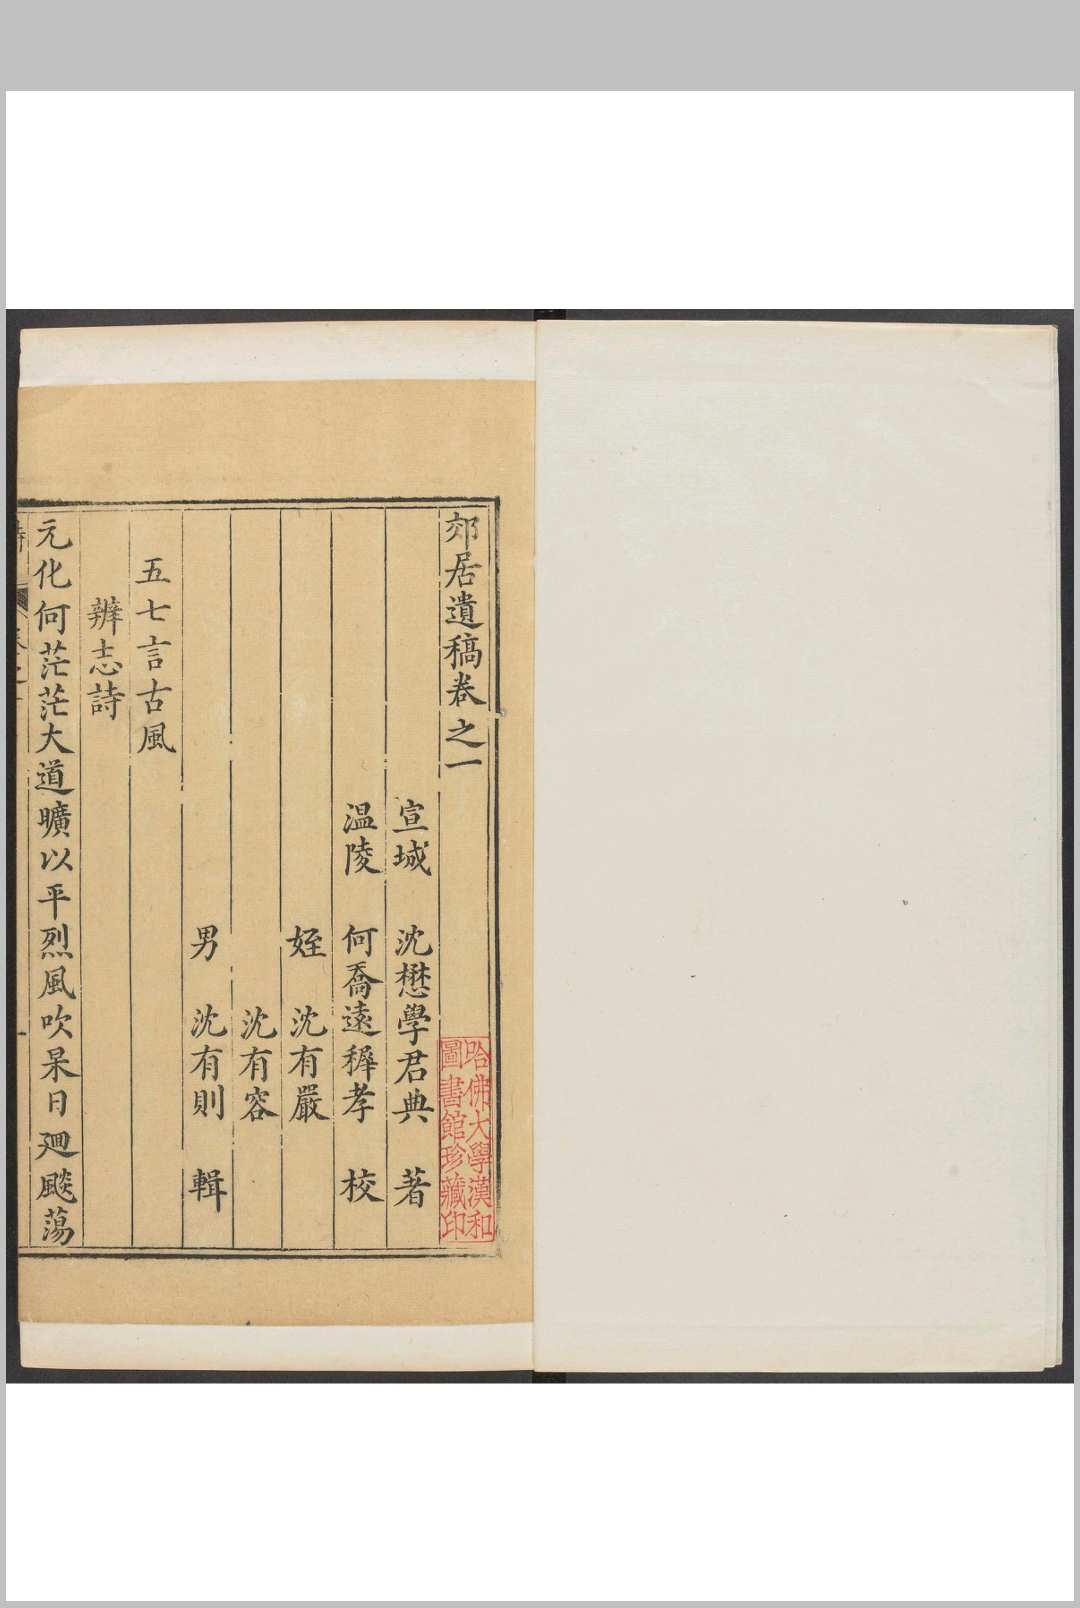 郊居遺稿卷之一
宣城　沈懋學君典　著
温陵　何喬遠穉孝　校
姪　沈有嚴
沈有容
男　沈有則　輯
五七言古風
辨志詩
元化何茫茫大道曠以平烈風吹杲日廻飈蕩
哈佛大學漢和
圖書館珍藏印